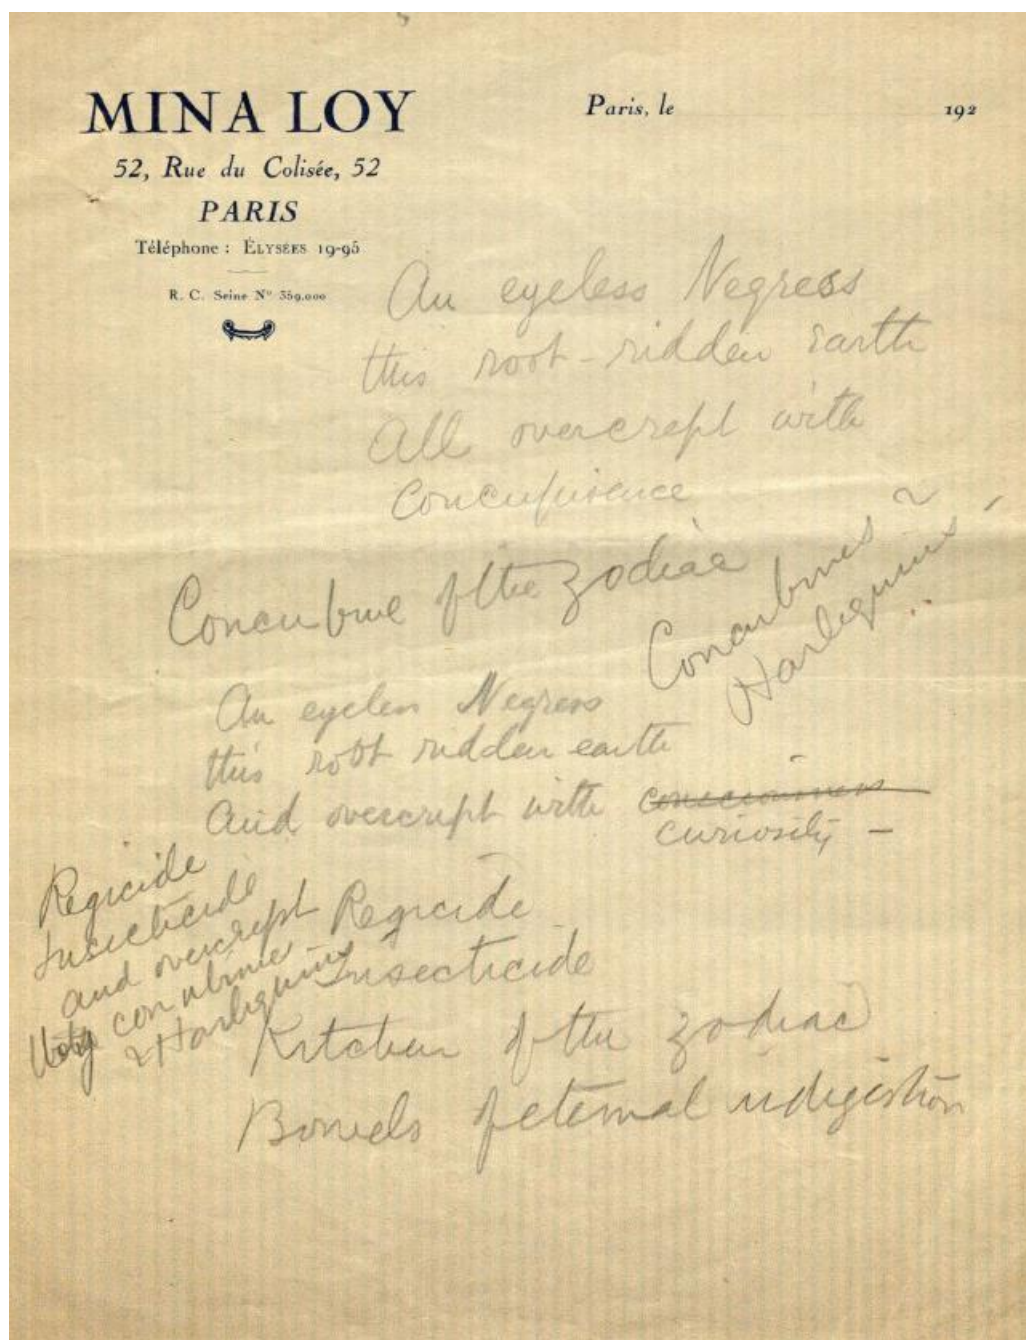 MINA LOY
52, Rue du Colisée, 52
PARIS
Téléphone : ÉLYSÉES 19-95
R. C. Seine Nº 359.000
Paris, le 192
An eyeless Negress
this root-ridden earth
all overcrept with
concupisence
Concubine of the zodiac
Concubines &
Harlequins
An eyeless Negress
this root ridden earth
and overcrept with consciousness
curiosity —
Regicide
Insecticide
and overcrept
concubine
& Harlequins
Regicide
Insecticide
Kitchen of the zodiac
Bowels of eternal indigestion